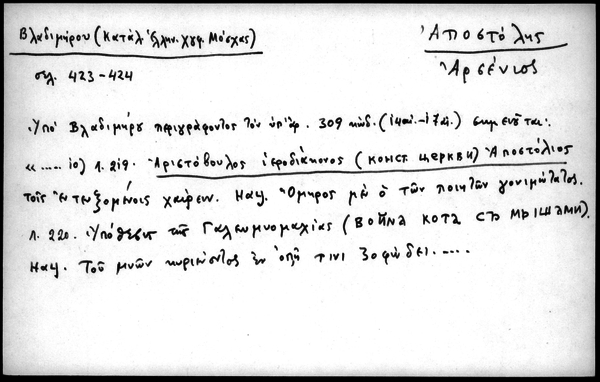 Βλαδιμήρου (Κατάλ. Ἑλλην. Χγφ. Μόσχας)
Ἀποστόλης
Ἀρσένιος
σελ. 423-424
Ὑπὸ Βλαδιμήρου περιγράφοντος τὸν ὑπ' ἀρ. 309 κώδ. σημειοῦται:
« ..... ιο) л. 219. Ἀριστόβουλος ἱεροδιάκονος (конст. церкви) Ἀποστόλιος
τοῖς ἐντευξομένοις χαίρειν. Нач. Ὅμηρος μὲν ὁ τῶν ποιητῶν γονιμώτατος.
л. 220. Ὑπόθεσις τῆς Γαλεωμυομαχίας (война кота съ мышами).
Нач. Τοῦ μυῶν κυριεύοντος ἐν ὀπῇ τινι ζοφώδει. .....